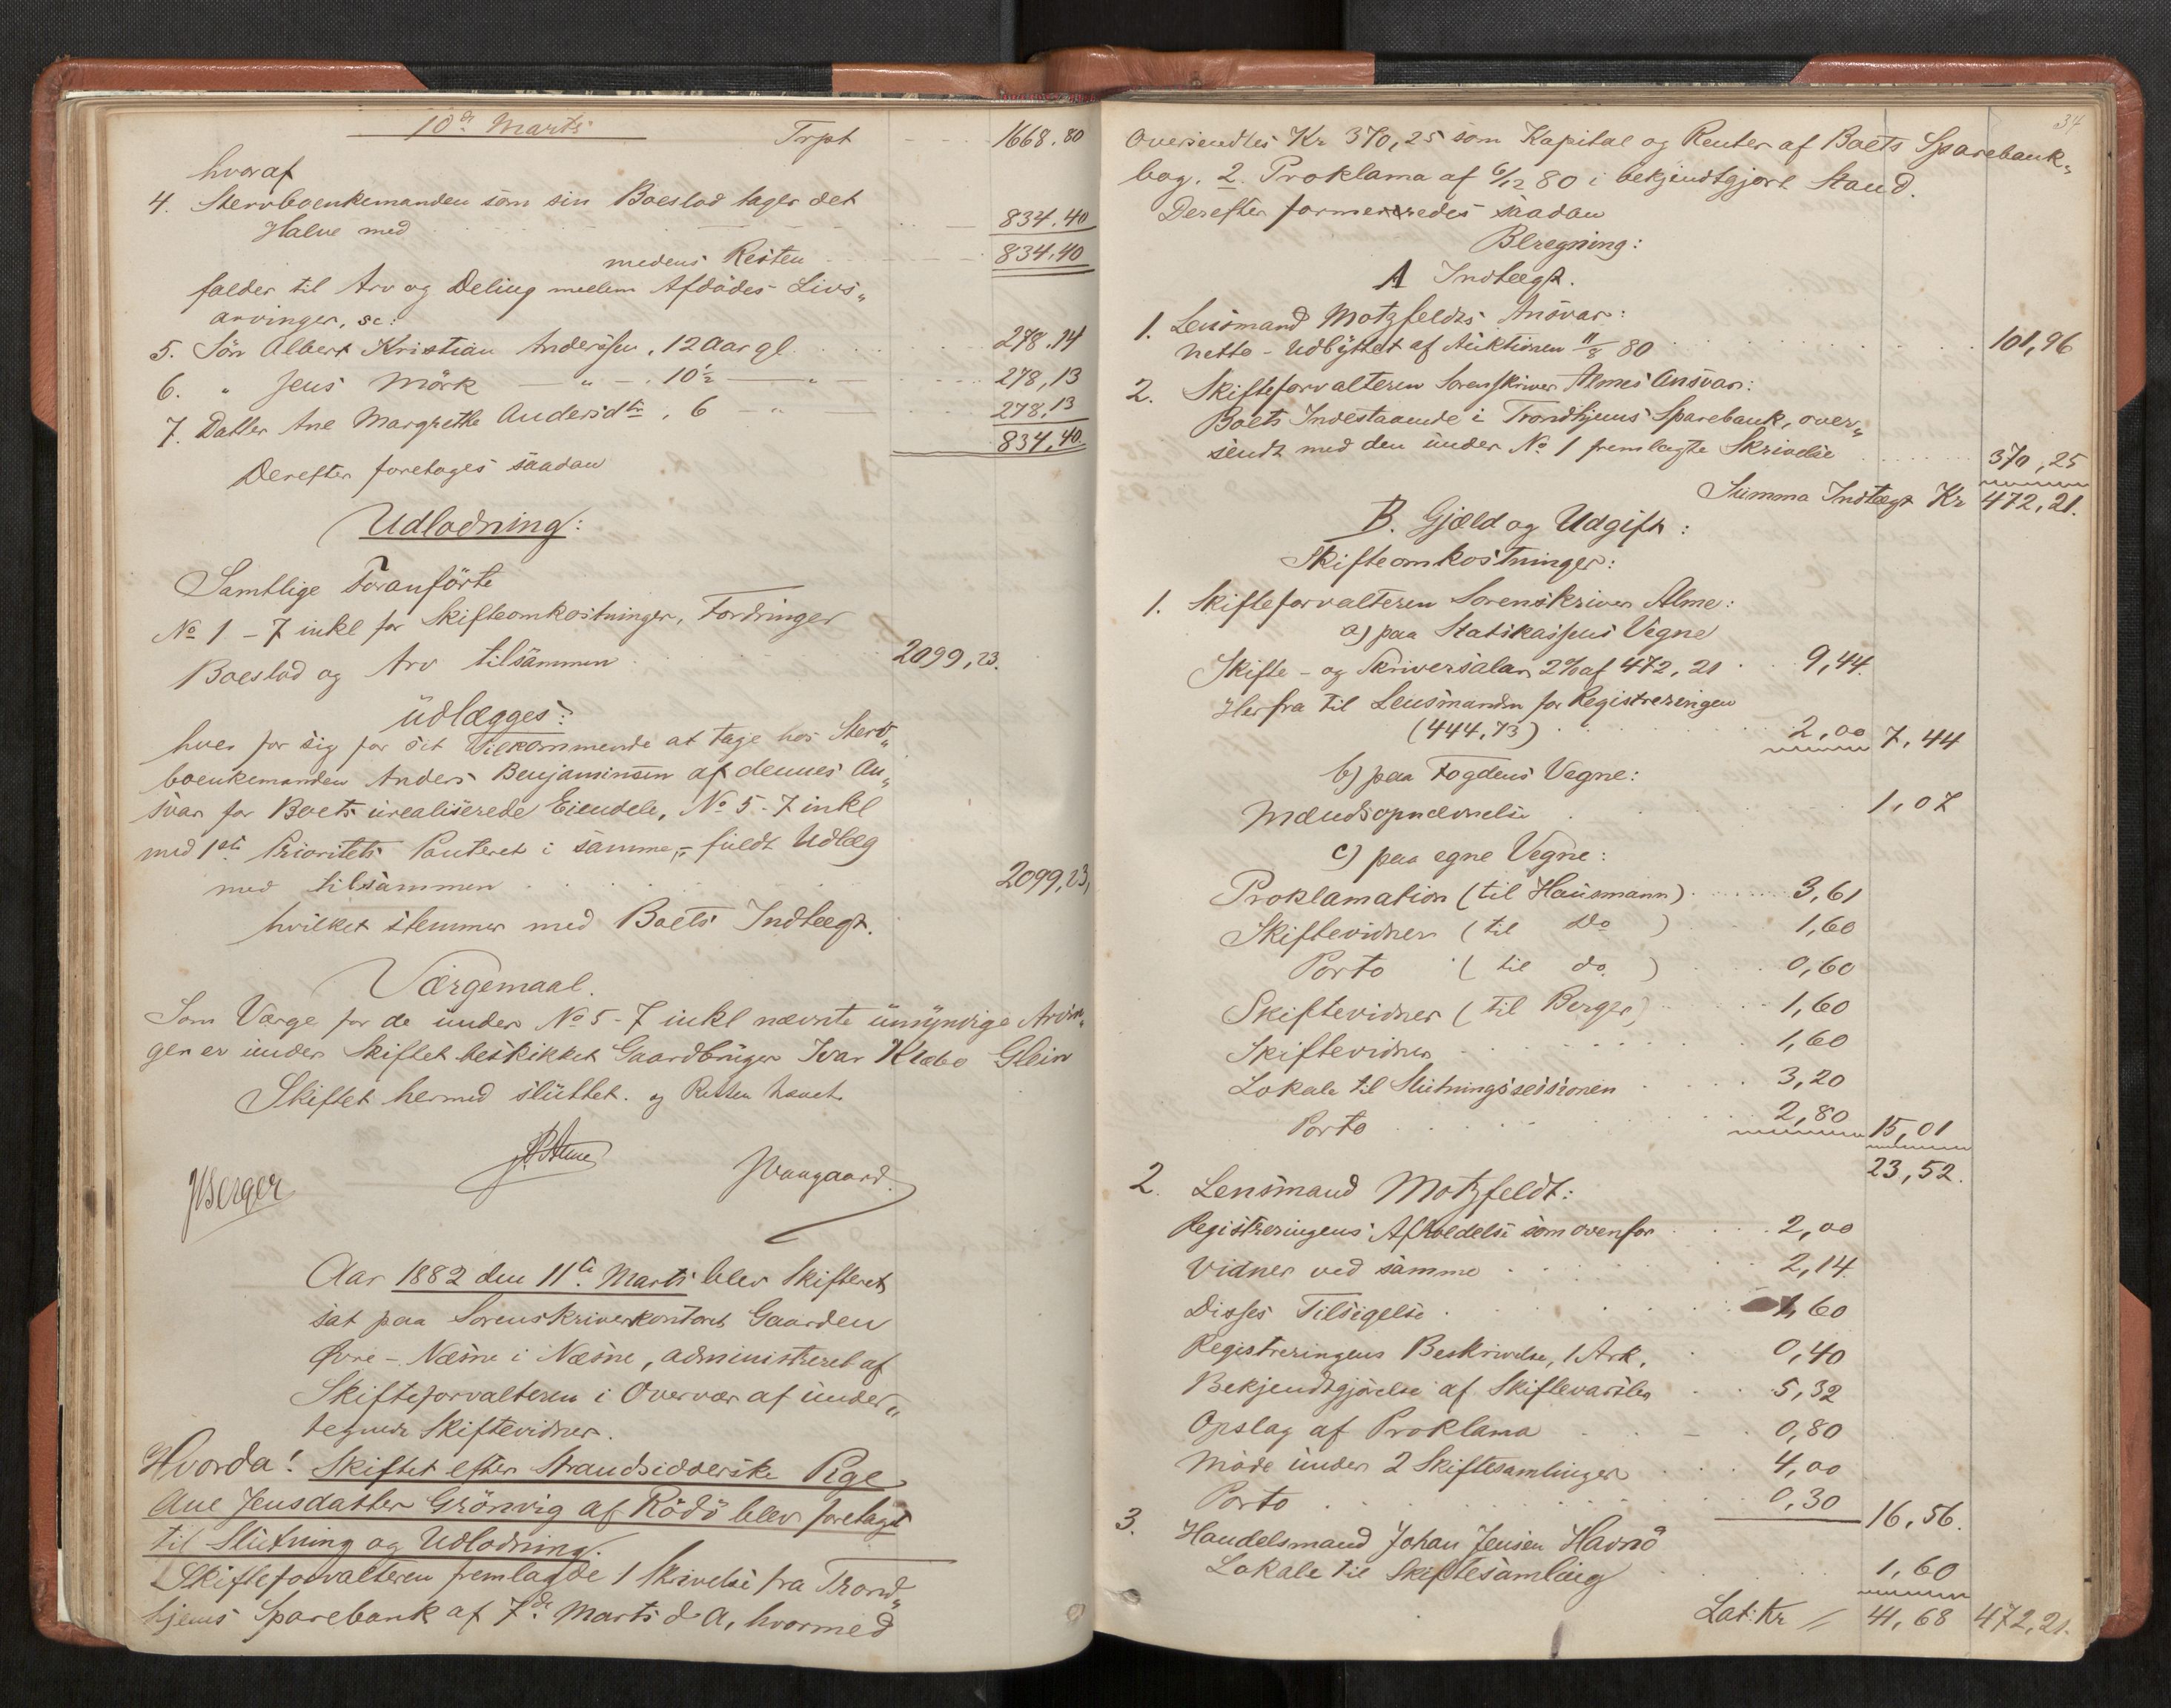 10de Marts
Trpt 1668.80
hvoraf
4. Stervboenkemanden som sin Boeslod tager det
Halve med 834.40
medens Resten 834.40
falder til Arv og Deling mellem Afdödes Livs„
arvinger, sc:
5. Sön Albert Kristian Anderssen, 12 Aar gl. 278.14
6. „ Jens Mörk — „ — . 10½ — „ — 278,13
7. Datter Ane Margrethe Andersdtr, 6 — „ — 278,13
834,40.
Derefter foretoges saadan
Udlodning:
Samtlige Foranförte
No 1 – 7 inkl for Skifteomkostninger, Fordringer
Boeslod og Arv tilsammen 2099,23.
udlægges:
hver for sig for sit Vilkommende at tage hos Sterv„
boenkemanden Anders Benjaminsen af dennes An„
svar for Boets urealiserede Eiendele, No 5-7 inkl
med 1ste Prioritets Panteret i samme, – fuldt Udlæg
med tilsammen 2099,23,
hvilket stemmer med Boets Indtægt.
Værgemaal.
Som Værge for de under No 5-7 inkl nævnte umyndige Arvin„
ger er under Skiftet beskikket Gaardbruger Ivar Klæbo Glein
Skiftet hermed sluttet. og Retten hævet.
JBerger
Aar 1882 den 11te Marts blev Skifteret
sat paa Sorenskriverkontoret Gaarden
Övre – Næsne i Næsne, administreret af
Skifteforvalteren i Overvær af under„
tegnede Skiftevidner.
Hvorda! Skiftet efter Strandsidderske Pige
Ane Jensdatter Grönvig af Rödö blev foretaget
til Slutning og Udlodning.
Skifteforvalteren fremlagde 1 Skrivelse fra Trond„
hjems Sparebank af 7de Marts d A, hvormed
34
oversendtes Kr 370,25 som Kapital og Renter af Boets Sparebank„
bog. 2. Proklama af 6/12 80 i bekjendtgjort Stand.
Derefter formeredes saadan
Beregning:
A Indtægt.
1. Lensmand Motzfeldts Ansvar:
Netto - Udbyttet af Auktionen 11/8 80 101,96
2. Skifteforvalteren Sorenskriver Almes Ansvar:
Boets Indestaaende i Trondhjems Sparebank, over„
sendt med den under No 1 fremlagte Skrivelse 370,25
Summa Indtægt Kr 472,21.
B. Gjæld og Udgift:
Skifteomkostninger:
1. Skifteforvalteren Sorenskriver Alme:
a) paa Statskassens Vegne
Skifte- og Skriversalær 2% af 472,21 9,44.
Herfra til Lensmanden for Registreringen
(444,73) 2,00 7,44
b) paa Fogdens Vegne:
Mændsopnævnelse 1,07
c) paa egne Vegne:
Proklamation (til Hausmann) 3,61
Skiftevidner (til Do) 1,60
Porto (til do.) 0,60
Skiftevidner (til Berger) 1,60
Skiftevidner 1,60
Lokale til Slutningssessionen 3,20
Porto 2,80 15,01
23,52.
2. Lensmand Motzfeldt:
Registreringens Afholdelse som ovenfor 2,00
Vidner ved samme 2,14.
Disses Tilsigelse 1,60
Registreringens Beskrivelse, 1 Ark, 0,40
Bekjendtgjörelse af Skiftevarsler 5,32
Opslag af Proklama 0,80
Möde under 2 Skiftesamlinger 4,00
Porto 0,30 16,56.
3. Handelsmand Johan Jensen Havnö
Lokale til Skiftesamling 1,60
Lat: Kr 41,68 472,21.